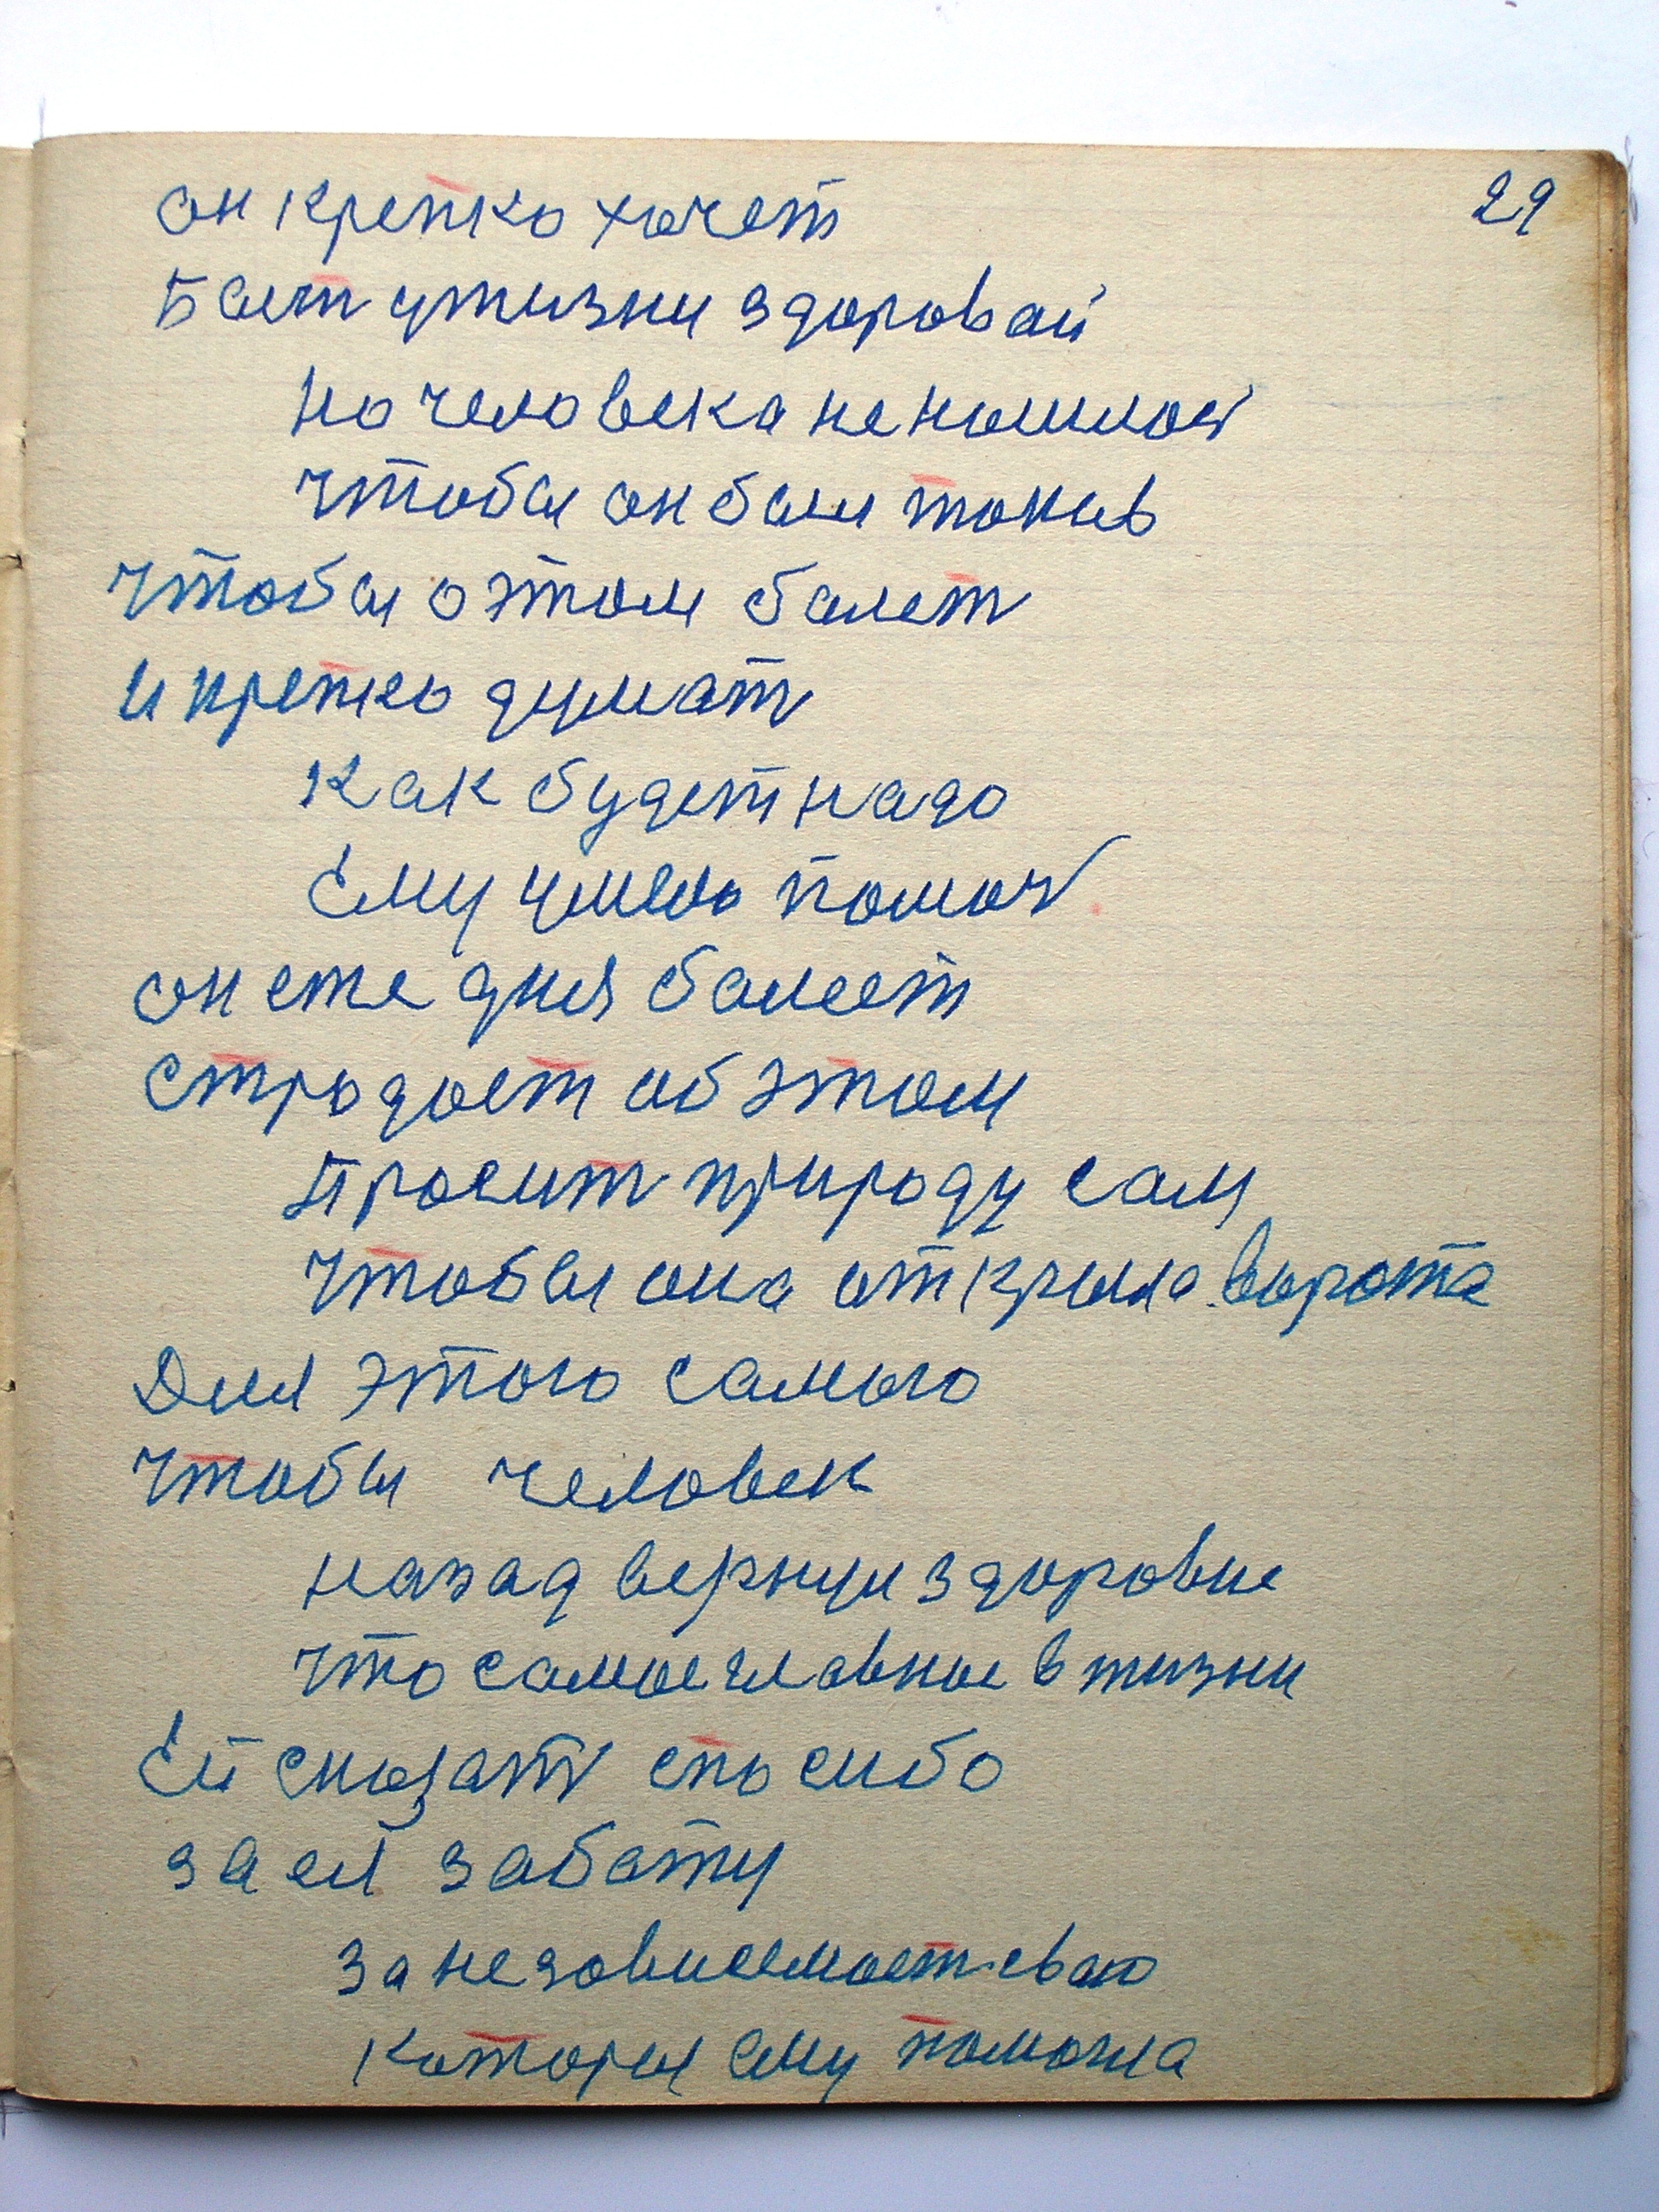 29
он крепко хочет
Быт у жизни здоровай
но человека не нашлос
чтобы он был таков
чтобы о этом балет
и крепко думат
как будет надо
Ему умело помоч
он сже дня балеет
страдает об этом
Просит природу сам
чтобы она открыла ворота
Для этого самого
чтобы человек
назад вернул здоровие
что самое главное в жизни
Ей сказат спасибо
за ей забату
за незовисемост сваю
каторыя ему помогла